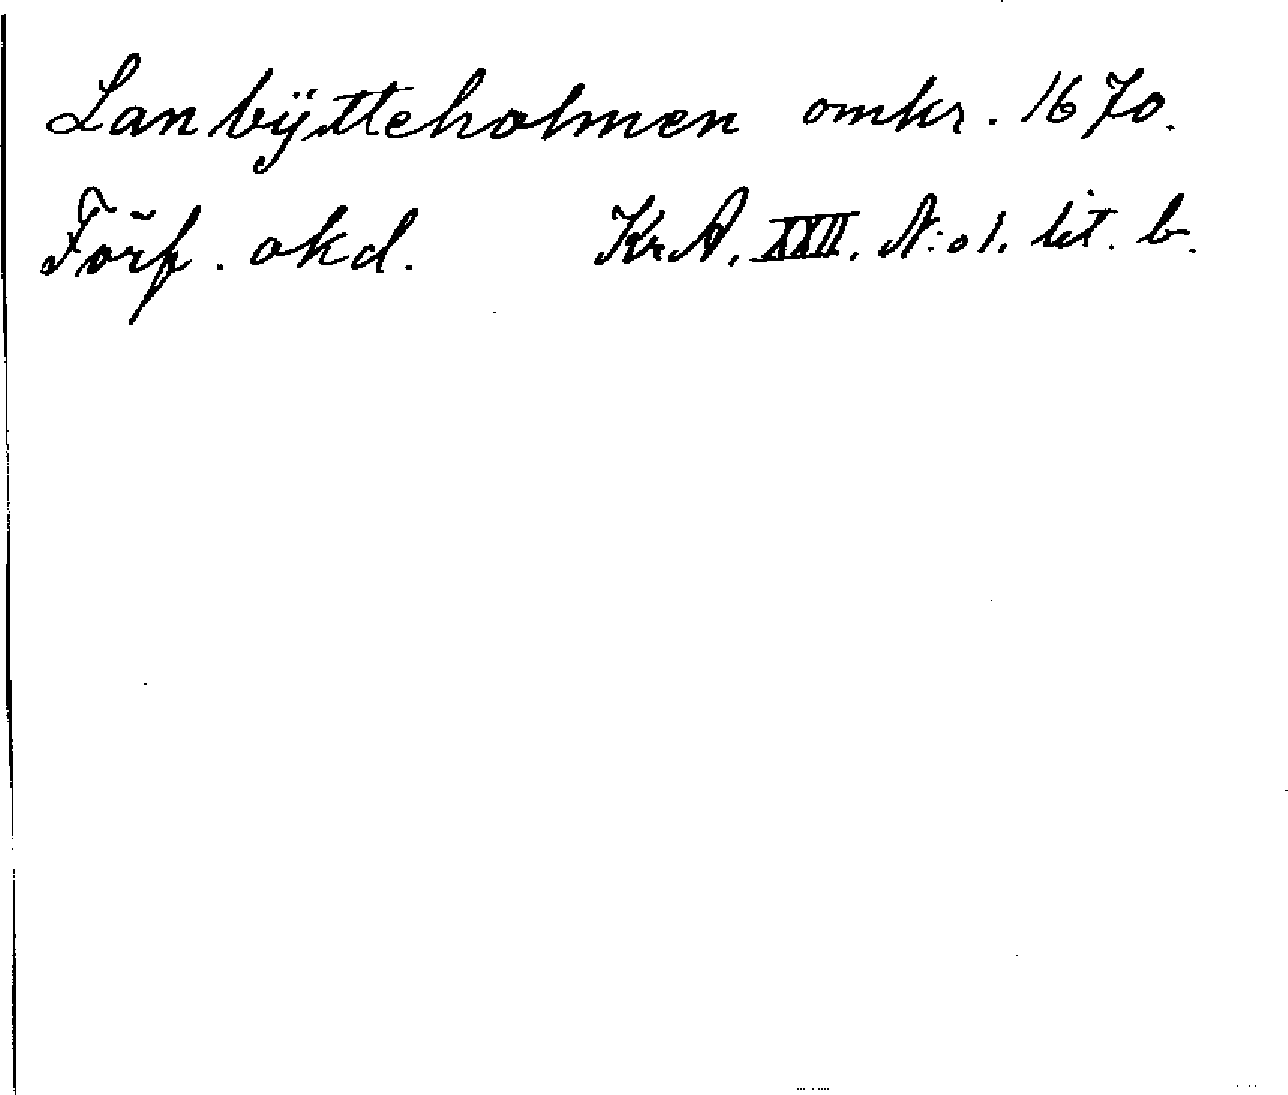 Lanbÿtteholmen omkr. 1670.
Förf. okd. Kr.A. XXII. N:o 1. lit. b.